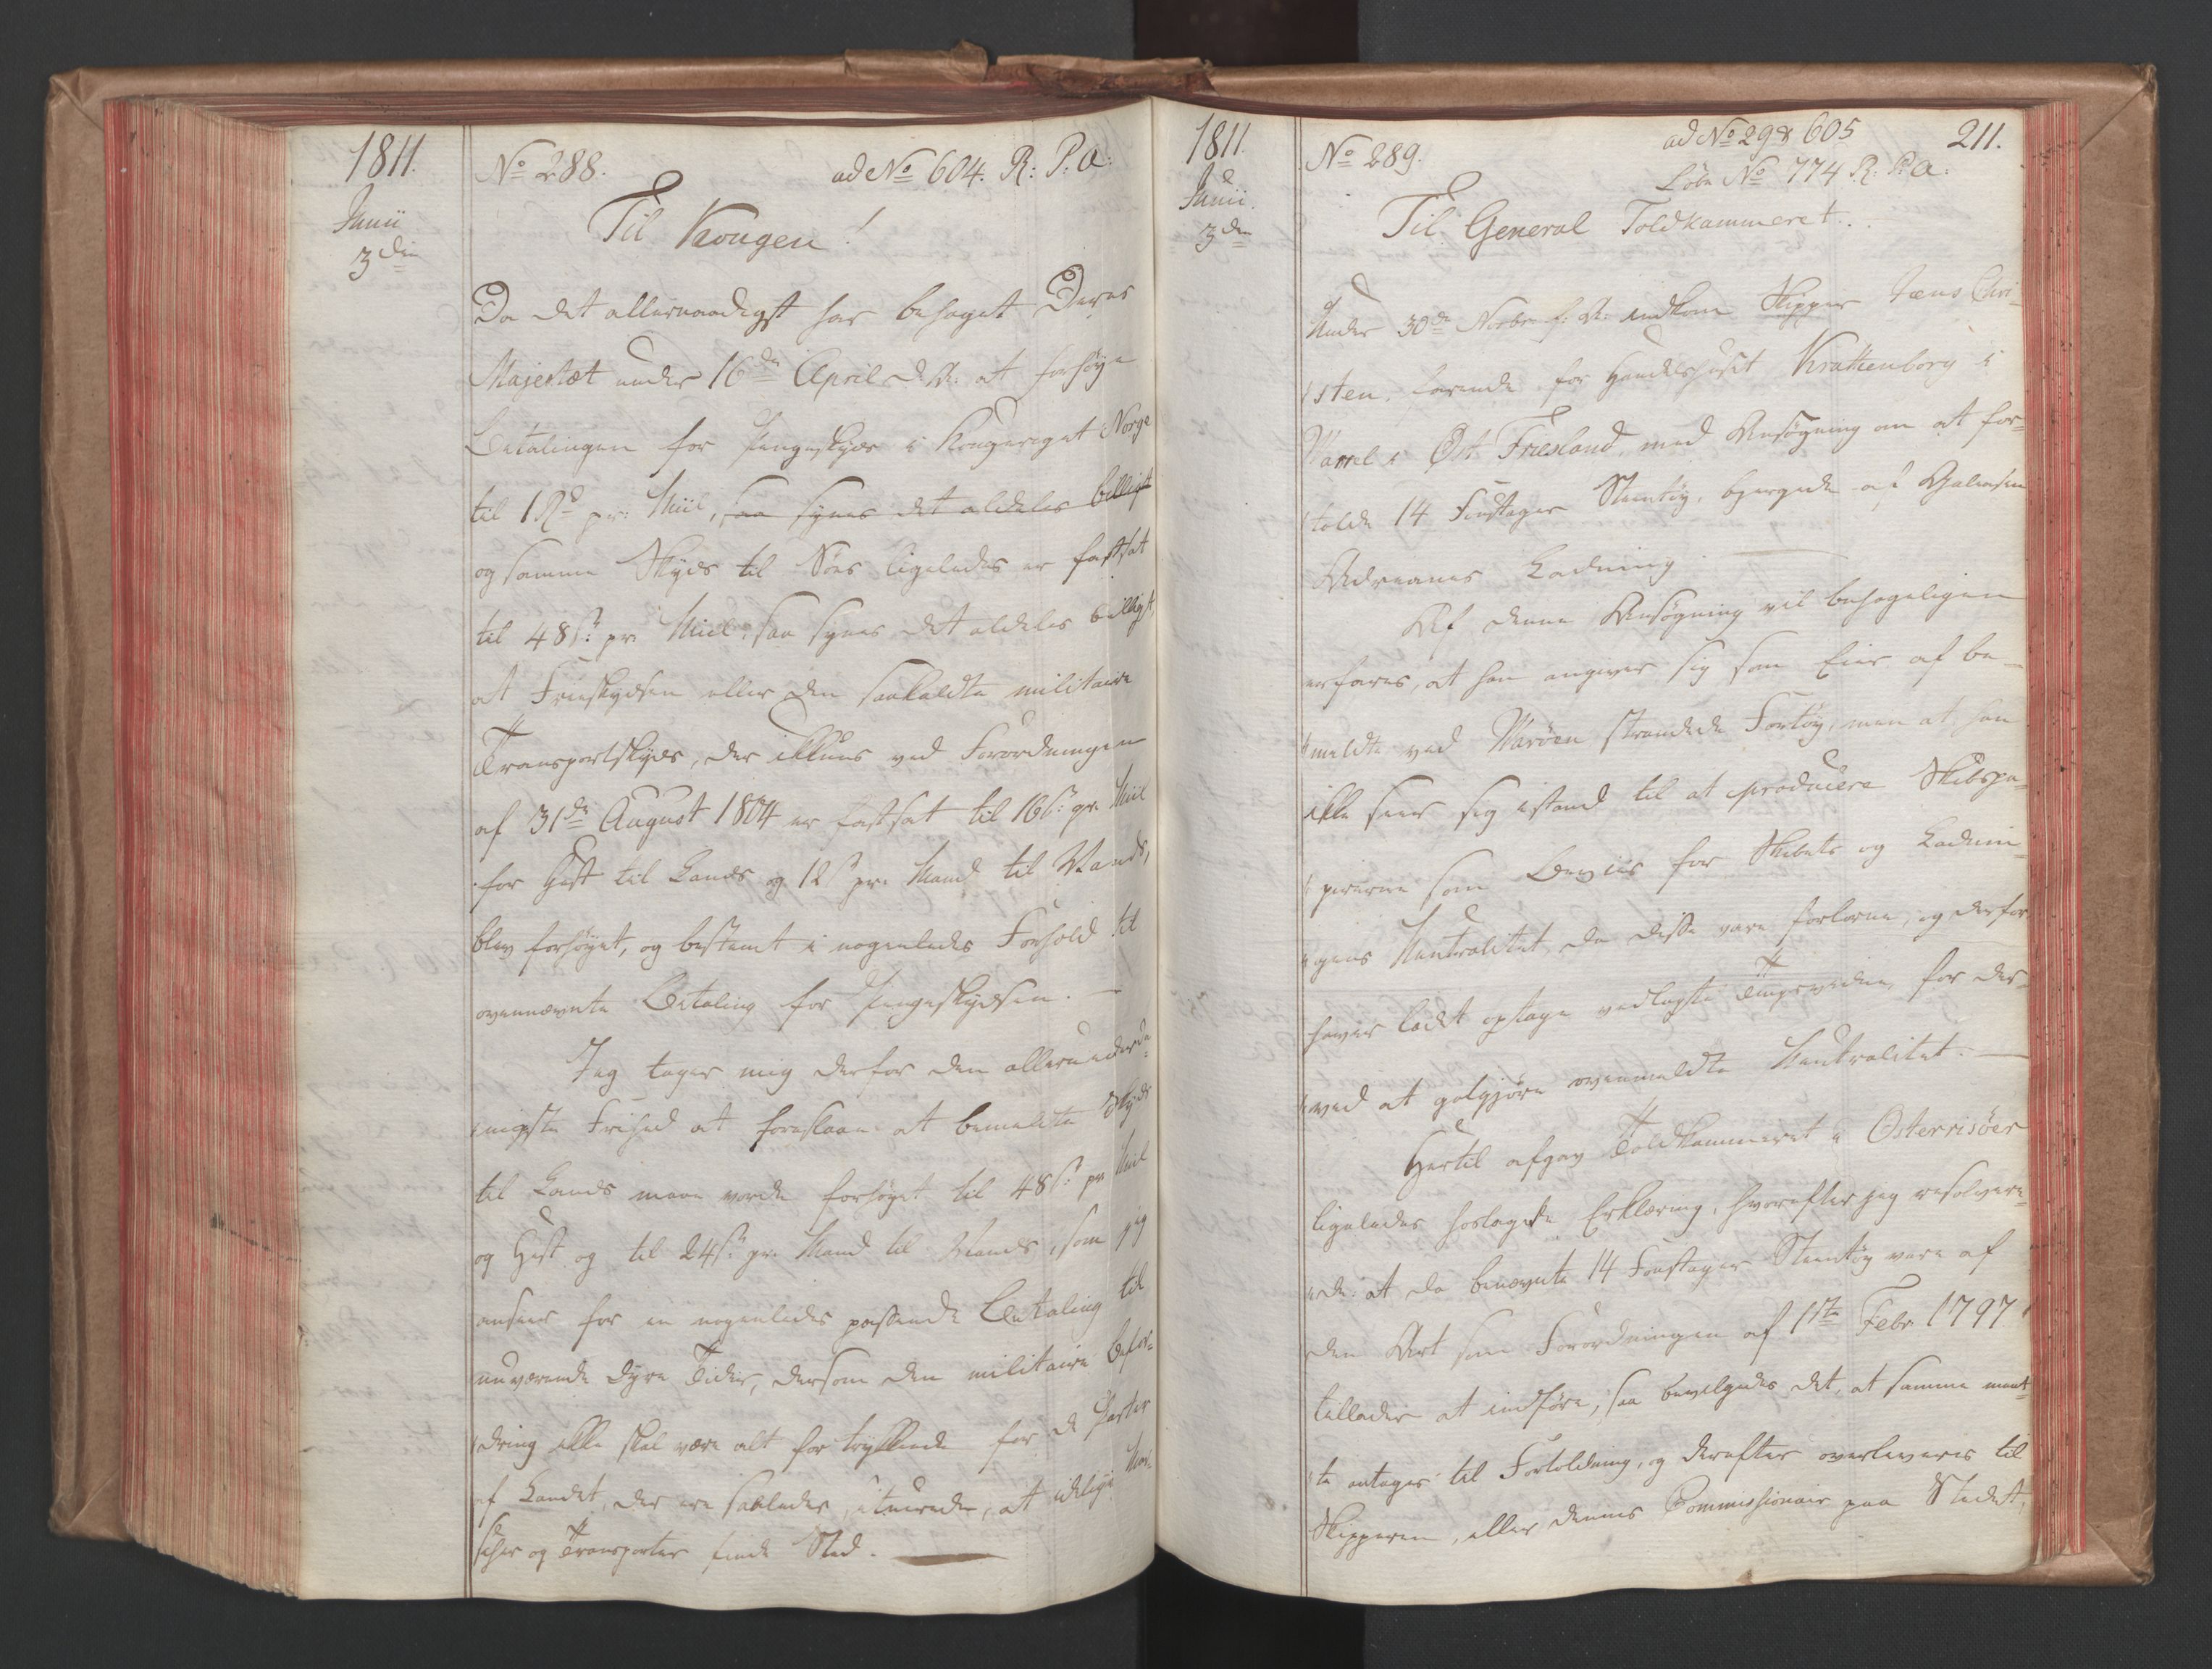 1811.
Junii
3die
No 288. ad No 604. R: P: A:
Til Kongen!
Da det allernaadigst har behaget Deres
Majestæt under 16de April d. A: at forhøye
Betalingen for Pengeskyds i Kongeriget Norge
til 1 Rd pr: Miil, saa synes det aldeles billigt
og samme Skyds til Søes ligeledes er fastsat
til 48 s: pr Miil, saa synes det aldeles billigt,
at Frieskydsen eller den saakaldte militaire
Transportskyds, der ikkuns ved Forordningen
af 31de August 1804 er fastsat til 16 s: pr. Miil
for Hest til Lands og 12 s pr. Mand til Vands,
blev forhøyet, og bestemt i nogenledes Forhold til
ovennævnte Betaling for Pengeskydsen. —
Jeg tager mig derfor den allerunderda-
nigste Frihed at foreslaae at bemeldte Skyds
til Lands maae vorde forhøyet til 48 s: pr Miil
og Hest og til 24 s: pr. Mand til Vands, som jeg
ansees for en nogenledes passende Betaling til
nuværende dyre Tider, dersom den militaire Befor-
dring ikke skal være alt for trykkende for de Parter
af Landet, der ere saaledes situerede, at idelige Mar-
scher og Transporter finde Sted. —
1811.
Junii.
3die
No 289. ad No 298 605 211.
Løbe No 774 R: P: A:
Til General Toldkammeret.
Under 30de Novbr. f: A: indkom Skipper Jens Chri-
sten, farende for Handelshuset Krattenborg i
Varel i Øst Friesland, med Ansøgning om at for-
tolde 14 Fustager Steentøy, bjergede af Galeasen
Adreanes Ladning
Af denne Ansøgning vil behageligen
erfares, at han angiver sig som Eier af be-
meldte ved Marøen strandede Fartøy, men at han
ikke seer sig istand til at producere Skibspa-
pirerne som Beviis for Skibets og Ladnin-
gens Neutralitet da disse vare forlorne, og derfor
haver ladet optage vedlagte Tingsvidne for der-
ved at godgjøre ovenmeldte Neutralitet. —
Hertil afgav Toldkammeret i Østerrisøer
ligeledes hoslagde Erklæring, hvorefter jeg resolvere-
rede: at da benævnte 14 Fustager Steentøy vare af
den Art som Forordningen af 1ste Febr 1797
tillader at indføre, saa bevilgedes det, at samme maat-
te antages til Fortoldning, og derefter overleveres til
Skipperen, eller dennes Commissionair paa Stedet,